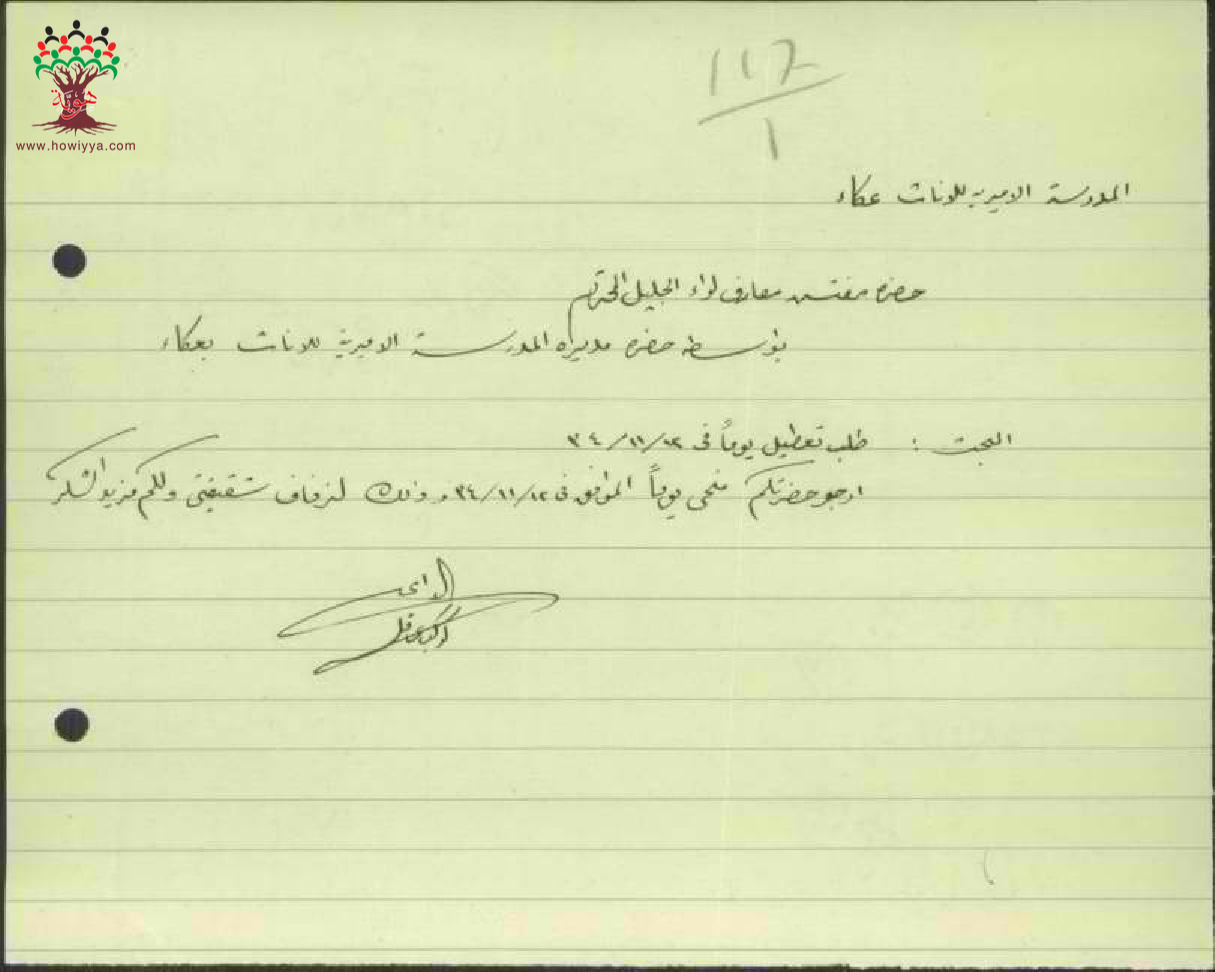 هوية
www.howiyya.com
117
1
المدرسة الاميرية للاناث عكاء
حضرة مفتش معارف لواء الجليل المحترم
بواسطة حضرة مديرة المدرسة الاميرية للاناث بعكاء
البحث : طلب تعطيل يوماً في ١٢/١١/٣٤
ارجو حضرتكم منحي يوماً الموافق في ١٢/١١/٣٤ وذلك لزفاف شقيقتي ولكم مزيد الشكر
الداعي